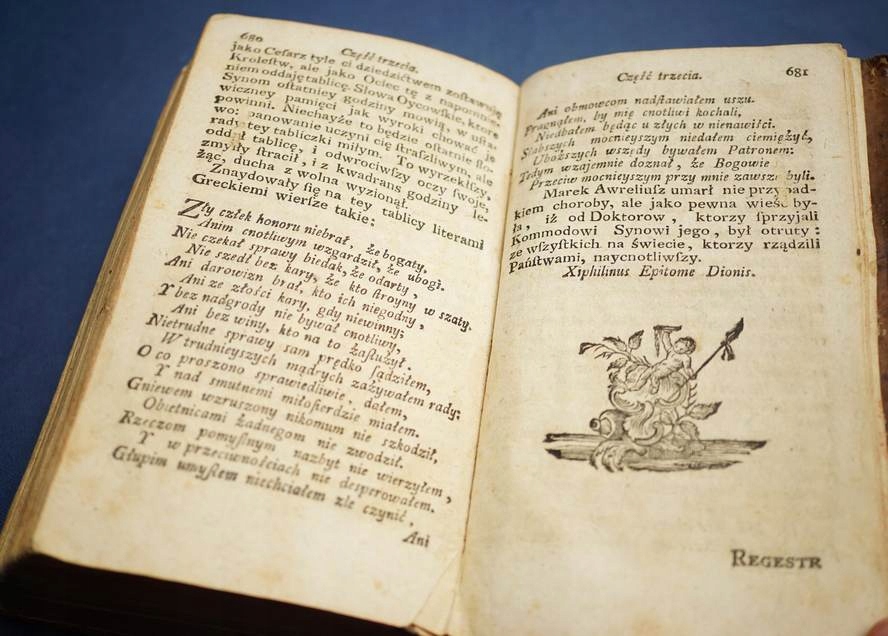 680
Część trzecia.
jako Cesarz tyle ci dziedzictwem zostawuię
Krolestw, ale jako Ociec tę z napomnie-
niem oddaję tablicę. Słowa Oycowskie, ktore
Synom ostatniey godziny mowią, w usta-
wiczney pamięci jak wyroki chować
powinni. Niechayże to będzie ostatnie sło-
wo: panowanie uczyni cię straszliwym, ale
rady tey tabliczki miłym. To wyrzekłszy,
oddał tablicę, i odwrociwszy oczy swoje,
zmysły stracił, i z kwadrans godziny le-
żąc, ducha z wolna wyzionął.
Znaydowały się na tey tablicy literami
Greckiemi wiersze takie:
Zły człek honoru niebrał, że bogaty,
Anim cnotliwym wzgardził, że ubogi.
Nie czekał sprawy biedak, że odarty,
Nie szedł bez kary, że kto stroyny w szaty.
Ani darowizn brał, kto ich niegodny,
Ani ze złości kary, gdy niewinny;
Y bez nadgrody nie bywał cnotliwy,
Ani bez winy, kto na to zasłużył.
Nietrudne sprawy sam prędko sądziłem,
W trudnieyszych mądrych zażywałem rady;
O co proszono sprawiedliwie, dałem,
Y nad smutnemi miłosierdzie miałem.
Gniewem wzruszony nikomum nie szkodził,
Obietnicami żadnegom nie zwodził.
Rzeczom pomyślnym nazbyt nie wierzyłem,
Y w przeciwnościach nie desperowałem.
Głupim umysłem niechciałem zle czynić,
Ani
Część trzecia.
681
Ani obmowcom nadstawiałem uszu.
Pragnąłem, by mię cnotliwi kochali,
Niedbałem będąc u złych w nienawiści.
Słabszych mocnieyszym niedałem ciemiężyć,
Uboższych wszędy bywałem Patronem:
Tedym wzajemnie doznał, że Bogowie
Przeciw mocnieyszym przy mnie zawsze byli.
Marek Awreliusz umarł nie przypad-
kiem choroby, ale jako pewna wieść by-
ła, iż od Doktorow, ktorzy sprzyjali
Kommodowi Synowi jego, był otruty:
ze wszystkich na świecie, ktorzy rządzili
Państwami, naycnotliwszy.
Xiphilinus Epitome Dionis.
REGESTR